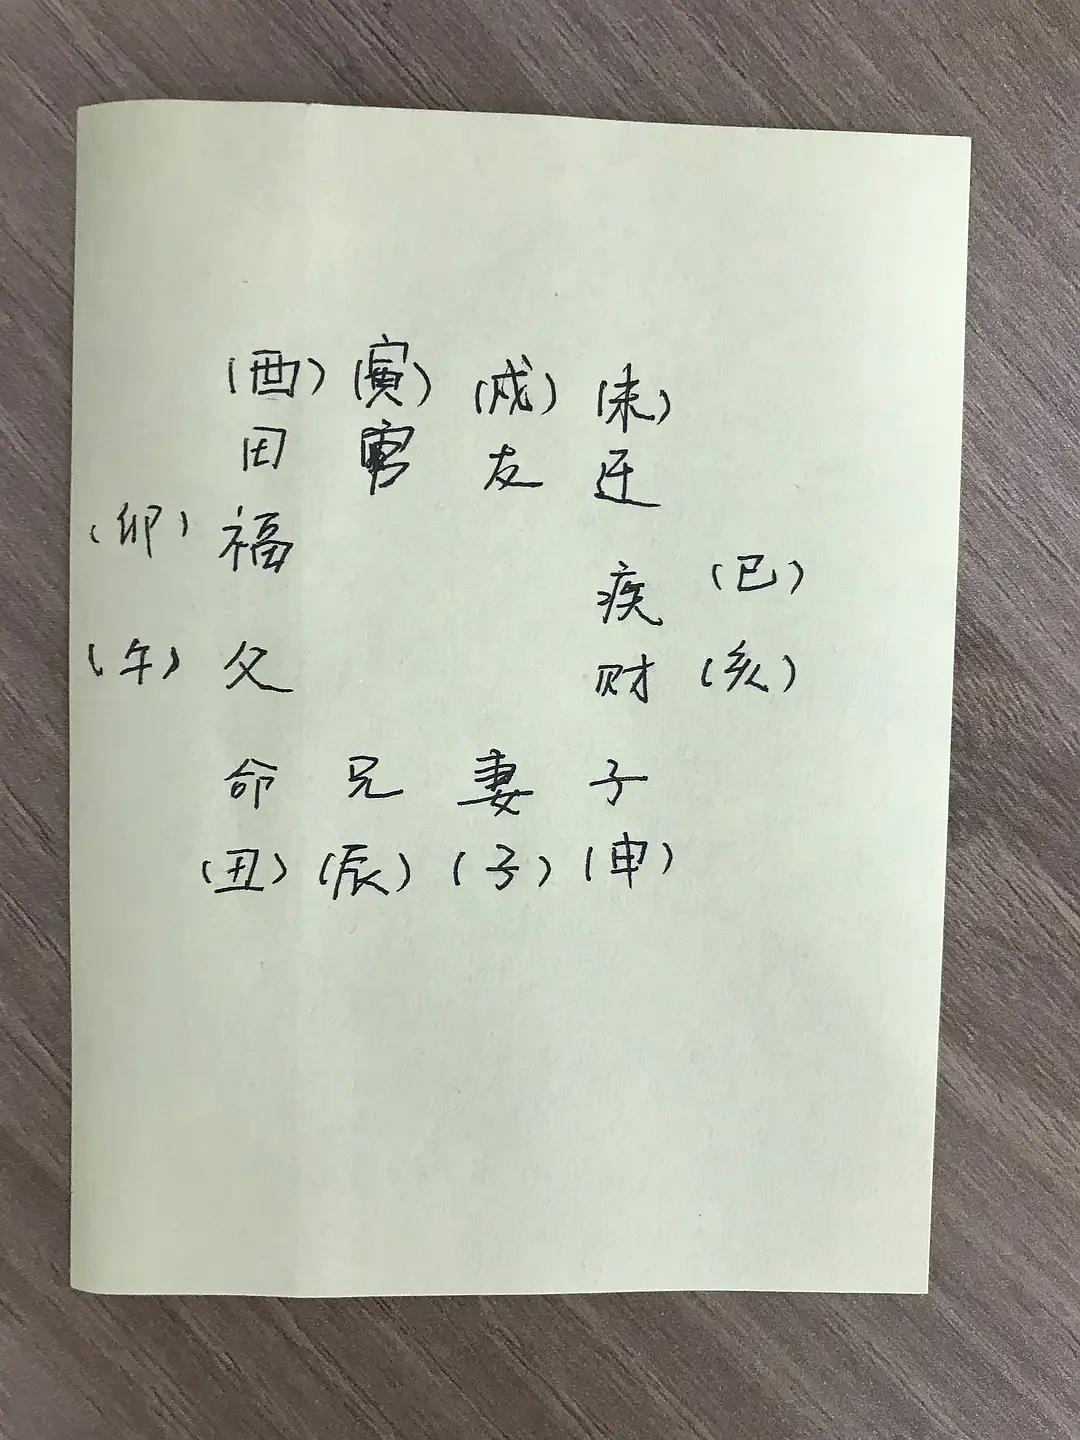 (酉) (寅) (戌) (未)
田 官 友 迁
(卯) 福
疾 (巳)
(午) 父 财 (亥)
命 兄 妻 子
(丑) (辰) (子) (申)